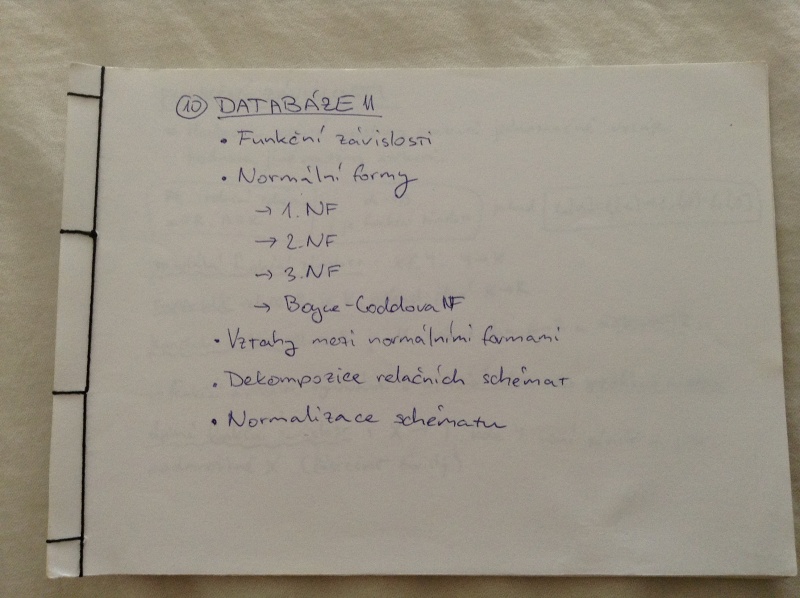 10 DATABÁZE II
• Funkční závislosti
• Normální formy
→ 1.NF
→ 2.NF
→ 3.NF
→ Boyce-Coddova NF
• Vztahy mezi normálními formami
• Dekompozice relačních schémat
• Normalizace schématu